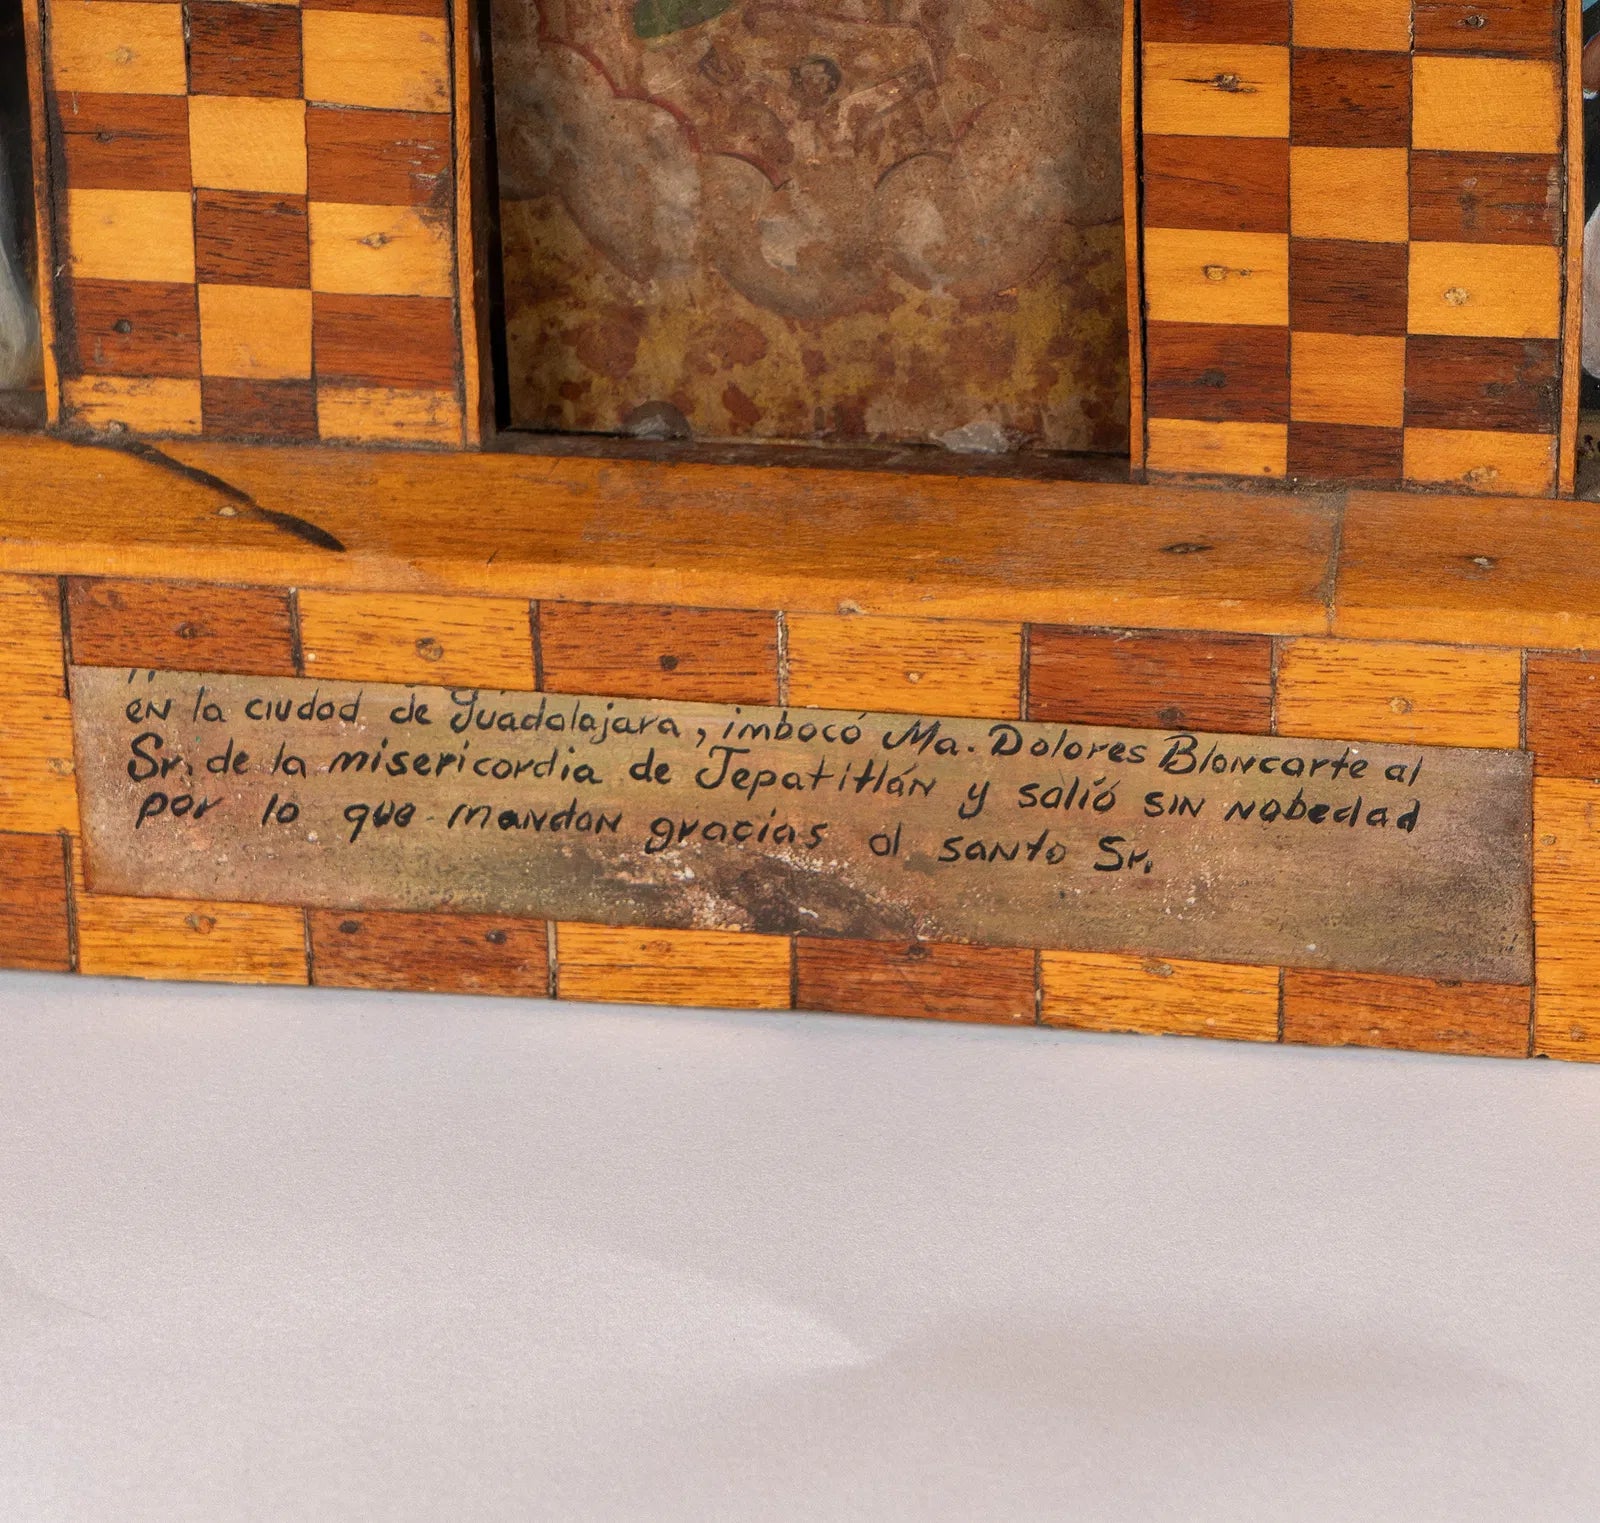 en la ciudad de Guadalajara, imbocó Ma. Dolores Blancarte al
Sr. de la misericordia de Tepatitlán y salió sin nobedad
por lo que mandan gracias al santo Sr.